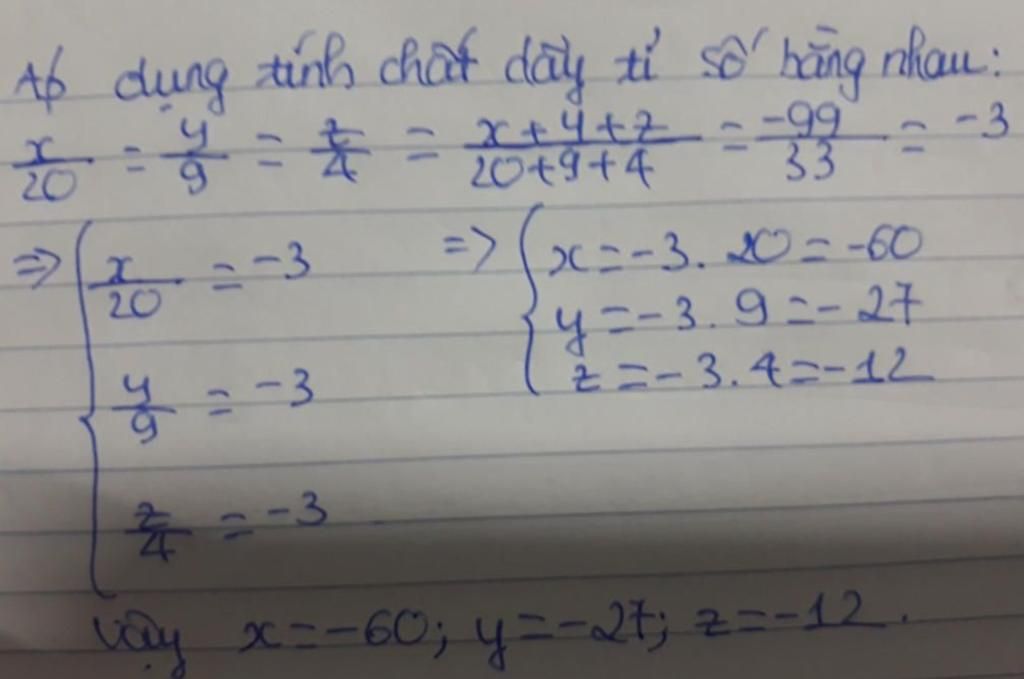 Áp dụng tính chất dãy tỉ số bằng nhau:
x/20 = y/9 = z/4 = x+y+z/20+9+4 = -99/33 = -3
=> { x/20 = -3 => { x = -3. 20 = -60
y = -3. 9 = -27
z = -3. 4 = -12
y/9 = -3
z/4 = -3
Vậy x = -60; y = -27; z = -12.